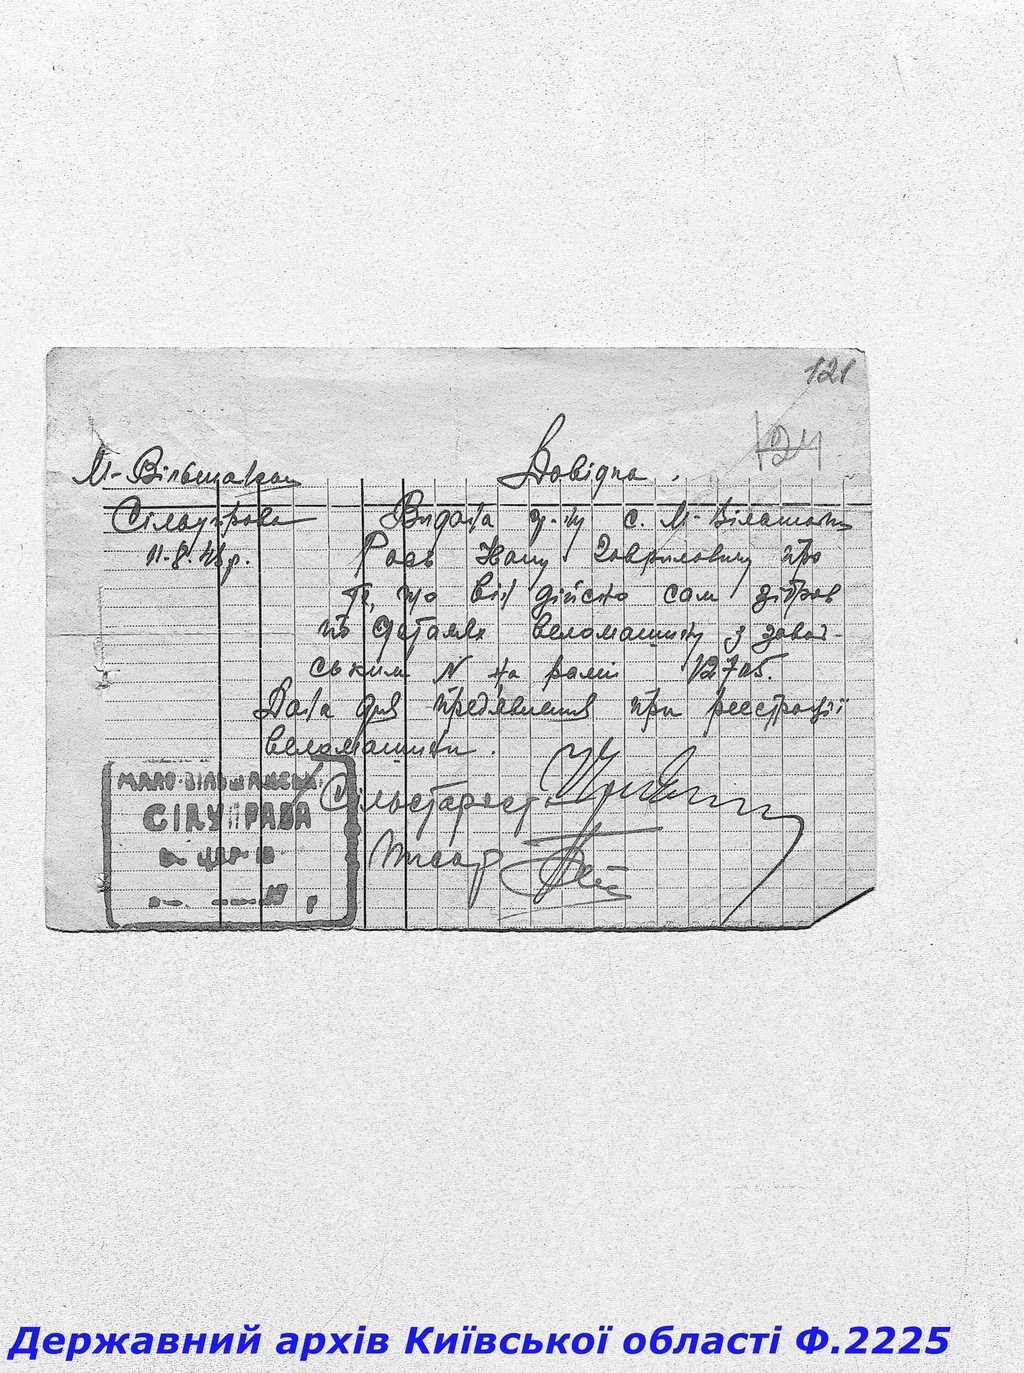 121
124
М-Вільшанська
Довідка.
Сільуправа
Видана гр-ну с. М-Вільшанки
11.8.48р.
Рось Івану Гавриловичу про
те, що він дійсно сам зібрав
по деталях веломашину з завод-
ським N на рамі
Дана для предявлення при реєстрації
веломашини.
МАЛО-ВІЛЬШАНСЬКА
СІЛУПРАВА
Сільстароста
Писар
р
Державний архів Київської області Ф.2225